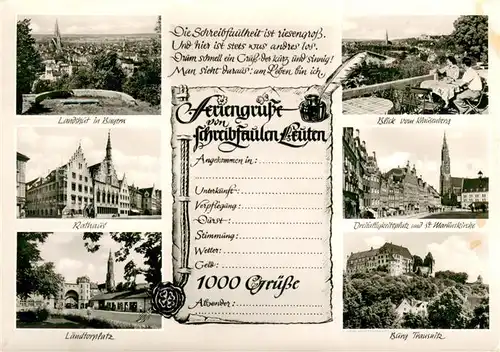 Die Schreibfaulheit ist riesengroß.
Und hier ist stets was andres los.
Drum schnell ein Gruß der kurz und sinnig!
Man sieht daraus: am Leben bin ich
Landshut in Bayern
Rathaus
Ländtorplatz
Feriengrüße
von
schreibfaulen Leuten
Angekommen in:
Unterkunft:
Verpflegung:
Durst:
Stimmung:
Wetter:
Geld:
1000 Grüße
Absender:
Blick vom Klausenberg
Dreifaltigkeitsplatz und St. Martinskirche
Burg Trausnitz